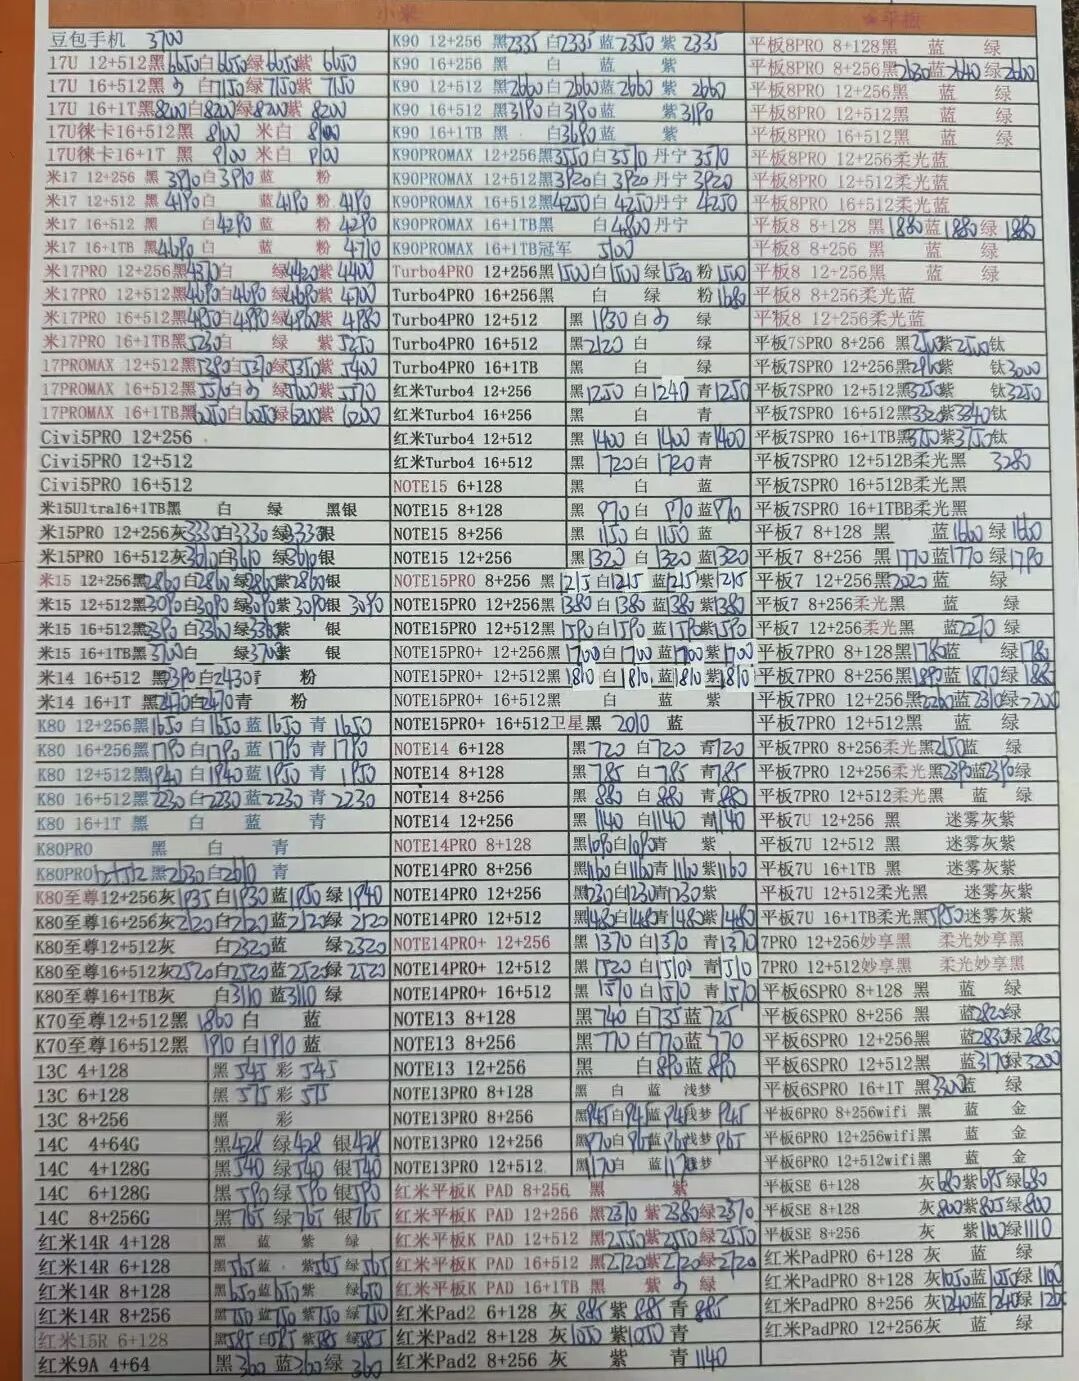 小米
★平板
豆包手机 3700
17U 12+512黑6650白6650绿6650紫 6650
17U 16+512黑 白7150绿7150紫 7150
17U 16+1T黑8200白8200绿8200紫 8200
17U徕卡16+512黑 8100 米白 8100
17U徕卡16+1T 黑 9100 米白 9100
米17 12+256 黑 3910白3910蓝 粉
米17 12+512 黑 4190白 蓝4190粉 4190
米17 16+512 黑 白4290 蓝 粉 4290
米17 16+1TB 黑4690 白 蓝 粉 4710
米17PRO 12+256黑4370白 绿4420紫 4400
米17PRO 12+512黑4690白4690绿4690紫 4700
米17PRO 16+512黑4950白4990绿4960紫 4980
米17PRO 16+1TB黑5230白 绿 紫 5250
17PROMAX 12+512黑5390白5370绿5350紫 5400
17PROMAX 16+512黑5570白 绿5600紫 5570
17PROMAX 16+1TB黑6050白6050绿6200紫 6200
Civi5PRO 12+256
Civi5PRO 12+512
Civi5PRO 16+512
米15Ultra16+1TB黑 白 绿 黑银
米15PRO 12+256灰3330白3330绿3330银
米15PRO 16+512灰3610白3610 绿3610银
米15 12+256黑2860白2860 绿2860紫2860银
米15 12+512黑3090白3090 绿3090紫3090银 3090
米15 16+512黑3390白3360 绿3360紫 银
米15 16+1TB黑3700白 绿3700紫 银
米14 16+512 黑2390白2430青 粉
米14 16+1T 黑2470白2470青 粉
K80 12+256黑1650 白1650蓝1650 青 1650
K80 16+256黑1790 白1790蓝1790 青 1790
K80 12+512黑1940 白1940蓝1950 青 1950
K80 16+512黑2230 白2230蓝2230 青 2230
K80 16+1T 黑 白 蓝 青
K80PRO 黑 白 青
K80PRO12+512黑2630白2610 青
K80至尊12+256灰1935白1930蓝1950绿 1940
K80至尊16+256灰2120白2120蓝2120绿 2120
K80至尊12+512灰 白2320蓝 绿2320
K80至尊16+512灰2520白2520蓝2520绿 2520
K80至尊16+1TB灰 白3110 蓝3110 绿
K70至尊12+512黑 1860 白 蓝
K70至尊16+512黑 1910 白1910 蓝
13C 4+128 黑 545 彩 545
13C 6+128 黑 575 彩 575
13C 8+256 黑 彩
14C 4+64G 黑428 绿428 银428
14C 4+128G 黑540 绿540 银540
14C 6+128G 黑590 绿590 银590
14C 8+256G 黑765 绿765 银765
红米14R 4+128 黑 蓝 紫 绿
红米14R 6+128 黑565蓝565紫565绿565
红米14R 8+128 黑650蓝650紫 绿650
红米14R 8+256 黑750蓝750紫750绿750
红米15R 6+128 黑585白585紫585绿585
红米9A 4+64 黑360 蓝360绿 360
K90 12+256 黑2335 白2335 蓝 2350 紫 2335
K90 16+256 黑 白 蓝 紫
K90 12+512 黑2660白2660蓝2660 紫 2660
K90 16+512 黑3190白3190蓝 紫3190
K90 16+1TB 黑 白3690 蓝 紫
K90PROMAX 12+256黑3550白3510 丹宁 3510
K90PROMAX 12+512黑3920白 3920 丹宁 3920
K90PROMAX 16+512黑4250白 4250丹宁 4250
K90PROMAX 16+1TB黑 白 4800丹宁
K90PROMAX 16+1TB冠军 5100
Turbo4PRO 12+256黑1500白1500 绿1520 粉1500
Turbo4PRO 16+256黑 白 绿 粉1680
Turbo4PRO 12+512 黑 1930 白 绿
Turbo4PRO 16+512 黑2120 白 绿
Turbo4PRO 16+1TB 黑 白 绿
红米Turbo4 12+256 黑1250 白1240 青1250
红米Turbo4 16+256 黑 白 青
红米Turbo4 12+512 黑 1400 白 1400 青1400
红米Turbo4 16+512 黑 1720白 1720青
NOTE15 6+128 黑 白 蓝
NOTE15 8+128 黑 970 白 970 蓝970
NOTE15 8+256 黑 1150 白1150 蓝
NOTE15 12+256 黑1320 白1320 蓝1320
NOTE15PRO 8+256 黑 1215白1215 蓝1215紫1215
NOTE15PRO 12+256黑1380白1380 蓝1380 紫1380
NOTE15PRO 12+512黑1590白1590 蓝1590紫1590
NOTE15PRO+ 12+256黑1700白1700 蓝1700紫1700
NOTE15PRO+ 12+512黑1810白1810 蓝1810紫1810
NOTE15PRO+ 16+512黑 白 蓝 紫
NOTE15PRO+ 16+512卫星黑 2010 蓝
NOTE14 6+128 黑720 白720 青720
NOTE14 8+128 黑785 白785 青785
NOTE14 8+256 黑880 白880 青880
NOTE14 12+256 黑1140 白1140 青1140
NOTE14PRO 8+128 黑1090白1090青 紫
NOTE14PRO 8+256 黑1160白1160青1160紫1160
NOTE14PRO 12+256 黑1230白1230青1230紫
NOTE14PRO 12+512 黑1480白1480青1480紫1480
NOTE14PRO+ 12+256 黑 1370 白1370 青1370
NOTE14PRO+ 12+512 黑 1520 白1510 青1510
NOTE14PRO+ 16+512 黑 1570 白1570 青1570
NOTE13 8+128 黑740 白735蓝725
NOTE13 8+256 黑770 白770蓝770
NOTE13 12+256 黑 白890蓝890
NOTE13PRO 8+128 黑 白 蓝 浅梦
NOTE13PRO 8+256 黑945白945蓝945浅梦 945
NOTE13PRO 12+256 黑970白965蓝965浅梦 965
NOTE13PRO 12+512 黑1170白 蓝1170浅梦
红米平板K PAD 8+256 黑 紫
红米平板K PAD 12+256 黑2370 紫2380绿2370
红米平板K PAD 12+512 黑2550紫2550绿2550
红米平板K PAD 16+512 黑2720紫2720绿2720
红米平板K PAD 16+1TB 黑 紫 绿
红米Pad2 6+128 灰 885 紫 885 青 885
红米Pad2 8+128 灰1050 紫1050 青
红米Pad2 8+256 灰 紫 青 1140
平板8PRO 8+128黑 蓝 绿
平板8PRO 8+256黑2630蓝2640 绿2600
平板8PRO 12+256黑 蓝 绿
平板8PRO 12+512黑 蓝 绿
平板8PRO 16+512黑 蓝 绿
平板8PRO 12+256柔光蓝
平板8PRO 12+512柔光蓝
平板8PRO 16+512柔光蓝
平板8 8+128 黑 1880蓝1880绿 1880
平板8 8+256 黑 蓝 绿
平板8 12+256 黑 蓝 绿
平板8 8+256柔光蓝
平板8 12+256柔光蓝
平板7SPRO 8+256 黑2500紫2500钛
平板7SPRO 12+256黑2910紫 钛3000
平板7SPRO 12+512黑3250紫 钛3250
平板7SPRO 16+512黑3320紫3340钛
平板7SPRO 16+1TB黑3750紫3750钛
平板7SPRO 12+512B柔光黑 3280
平板7SPRO 16+512B柔光黑
平板7SPRO 16+1TBB柔光黑
平板7 8+128 黑 蓝1660 绿 1650
平板7 8+256 黑 1770蓝1770 绿1790
平板7 12+256黑2020蓝 绿
平板7 8+256柔光黑 蓝 绿
平板7 12+256柔光黑 蓝2210 绿
平板7PRO 8+128黑1780蓝 绿 1780
平板7PRO 8+256黑1890蓝 1870绿 1885
平板7PRO 12+256黑2260蓝2310绿2200
平板7PRO 12+512黑 蓝 绿
平板7PRO 8+256柔光黑2150蓝 绿
平板7PRO 12+256柔光黑2390蓝2390绿
平板7PRO 12+512柔光黑 蓝 绿
平板7U 12+256 黑 迷雾灰紫
平板7U 12+512 黑 迷雾灰紫
平板7U 16+1TB 黑 迷雾灰紫
平板7U 12+512柔光黑 迷雾灰紫
平板7U 16+1TB柔光黑5950迷雾灰紫
7PRO 12+256妙享黑 柔光妙享黑
7PRO 12+512妙享黑 柔光妙享黑
平板6SPRO 8+128 黑 蓝 绿
平板6SPRO 8+256 黑 蓝2820绿
平板6SPRO 12+256黑 蓝2830绿2830
平板6SPRO 12+512黑 蓝3170绿3200
平板6SPRO 16+1T 黑3300蓝 绿
平板6PRO 8+256wifi 黑 蓝 金
平板6PRO 12+256wifi黑 蓝 金
平板6PRO 12+512wifi黑 蓝 金
平板SE 6+128 灰680紫695绿680
平板SE 8+128 灰800紫805绿800
平板SE 8+256 灰 紫1100绿1110
红米PadPRO 6+128 灰 蓝 绿
红米PadPRO 8+128 灰1050蓝1050绿 1100
红米PadPRO 8+256 灰1240蓝1240绿
红米PadPRO 12+256灰 蓝 绿